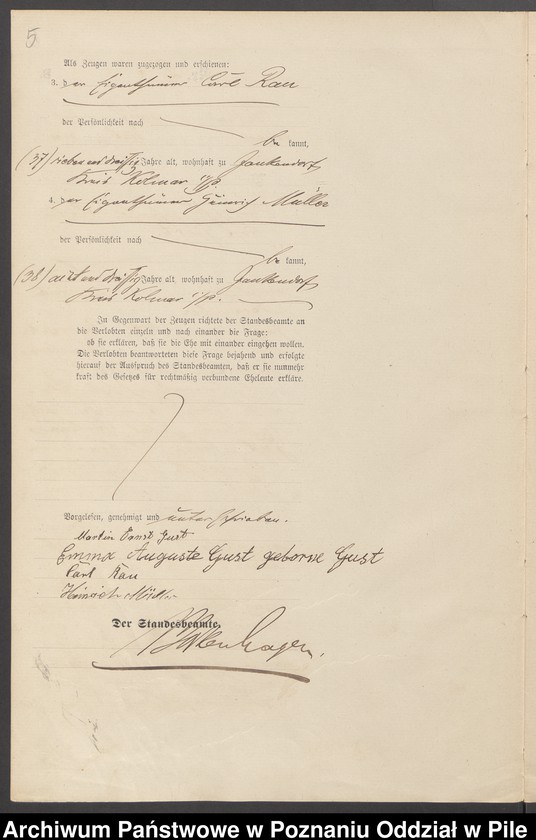 5
Als Zeugen waren zugezogen und erschienen:
3. der Eigenthümer Carl Rau
der Persönlichkeit nach
be kannt,
(37) siebenunddreißig Jahre alt, wohnhaft zu Jankendorf
Kreis Kolmar i/P.
4. der Eigenthümer Heinrich Müller
der Persönlichkeit nach
be kannt,
(38) achtunddreißig Jahre alt, wohnhaft zu Jankendorf
Kreis Kolmar i/P.
In Gegenwart der Zeugen richtete der Standesbeamte an
die Verlobten einzeln und nach einander die Frage:
ob sie erklären, daß sie die Ehe mit einander eingehen wollen.
Die Verlobten beantworteten diese Frage bejahend und erfolgte
hierauf der Ausspruch des Standesbeamten, daß er sie nunmehr
kraft des Gesetzes für rechtmäßig verbundene Eheleute erkläre.
Vorgelesen, genehmigt und unterschrieben.
Martin Ernst Gust
Emma Auguste Gust geborne Gust
Carl Rau
Heinrich Müller
Der Standesbeamte.
Archiwum Państwowe w Poznaniu Oddział w Pile